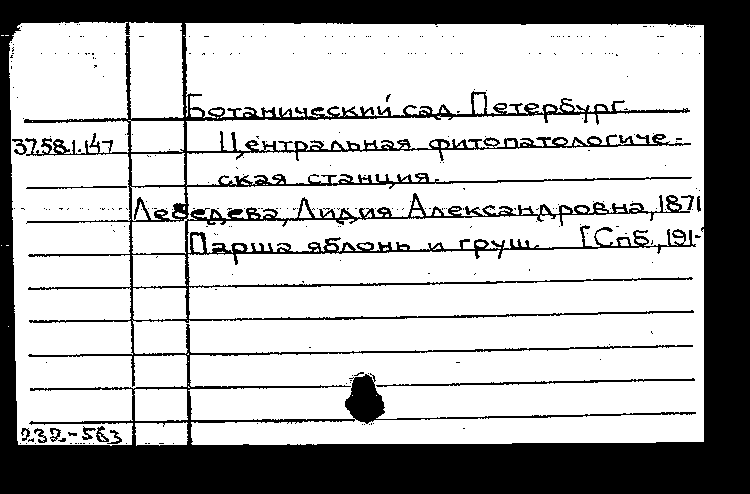 Ботанический сад. Петербург.
37.58.1.147 Центральная фитопатологиче-
ская станция.
Лебедева, Лидия Александровна, 1871
Парша яблонь и груш. [Спб., 191-
232-563